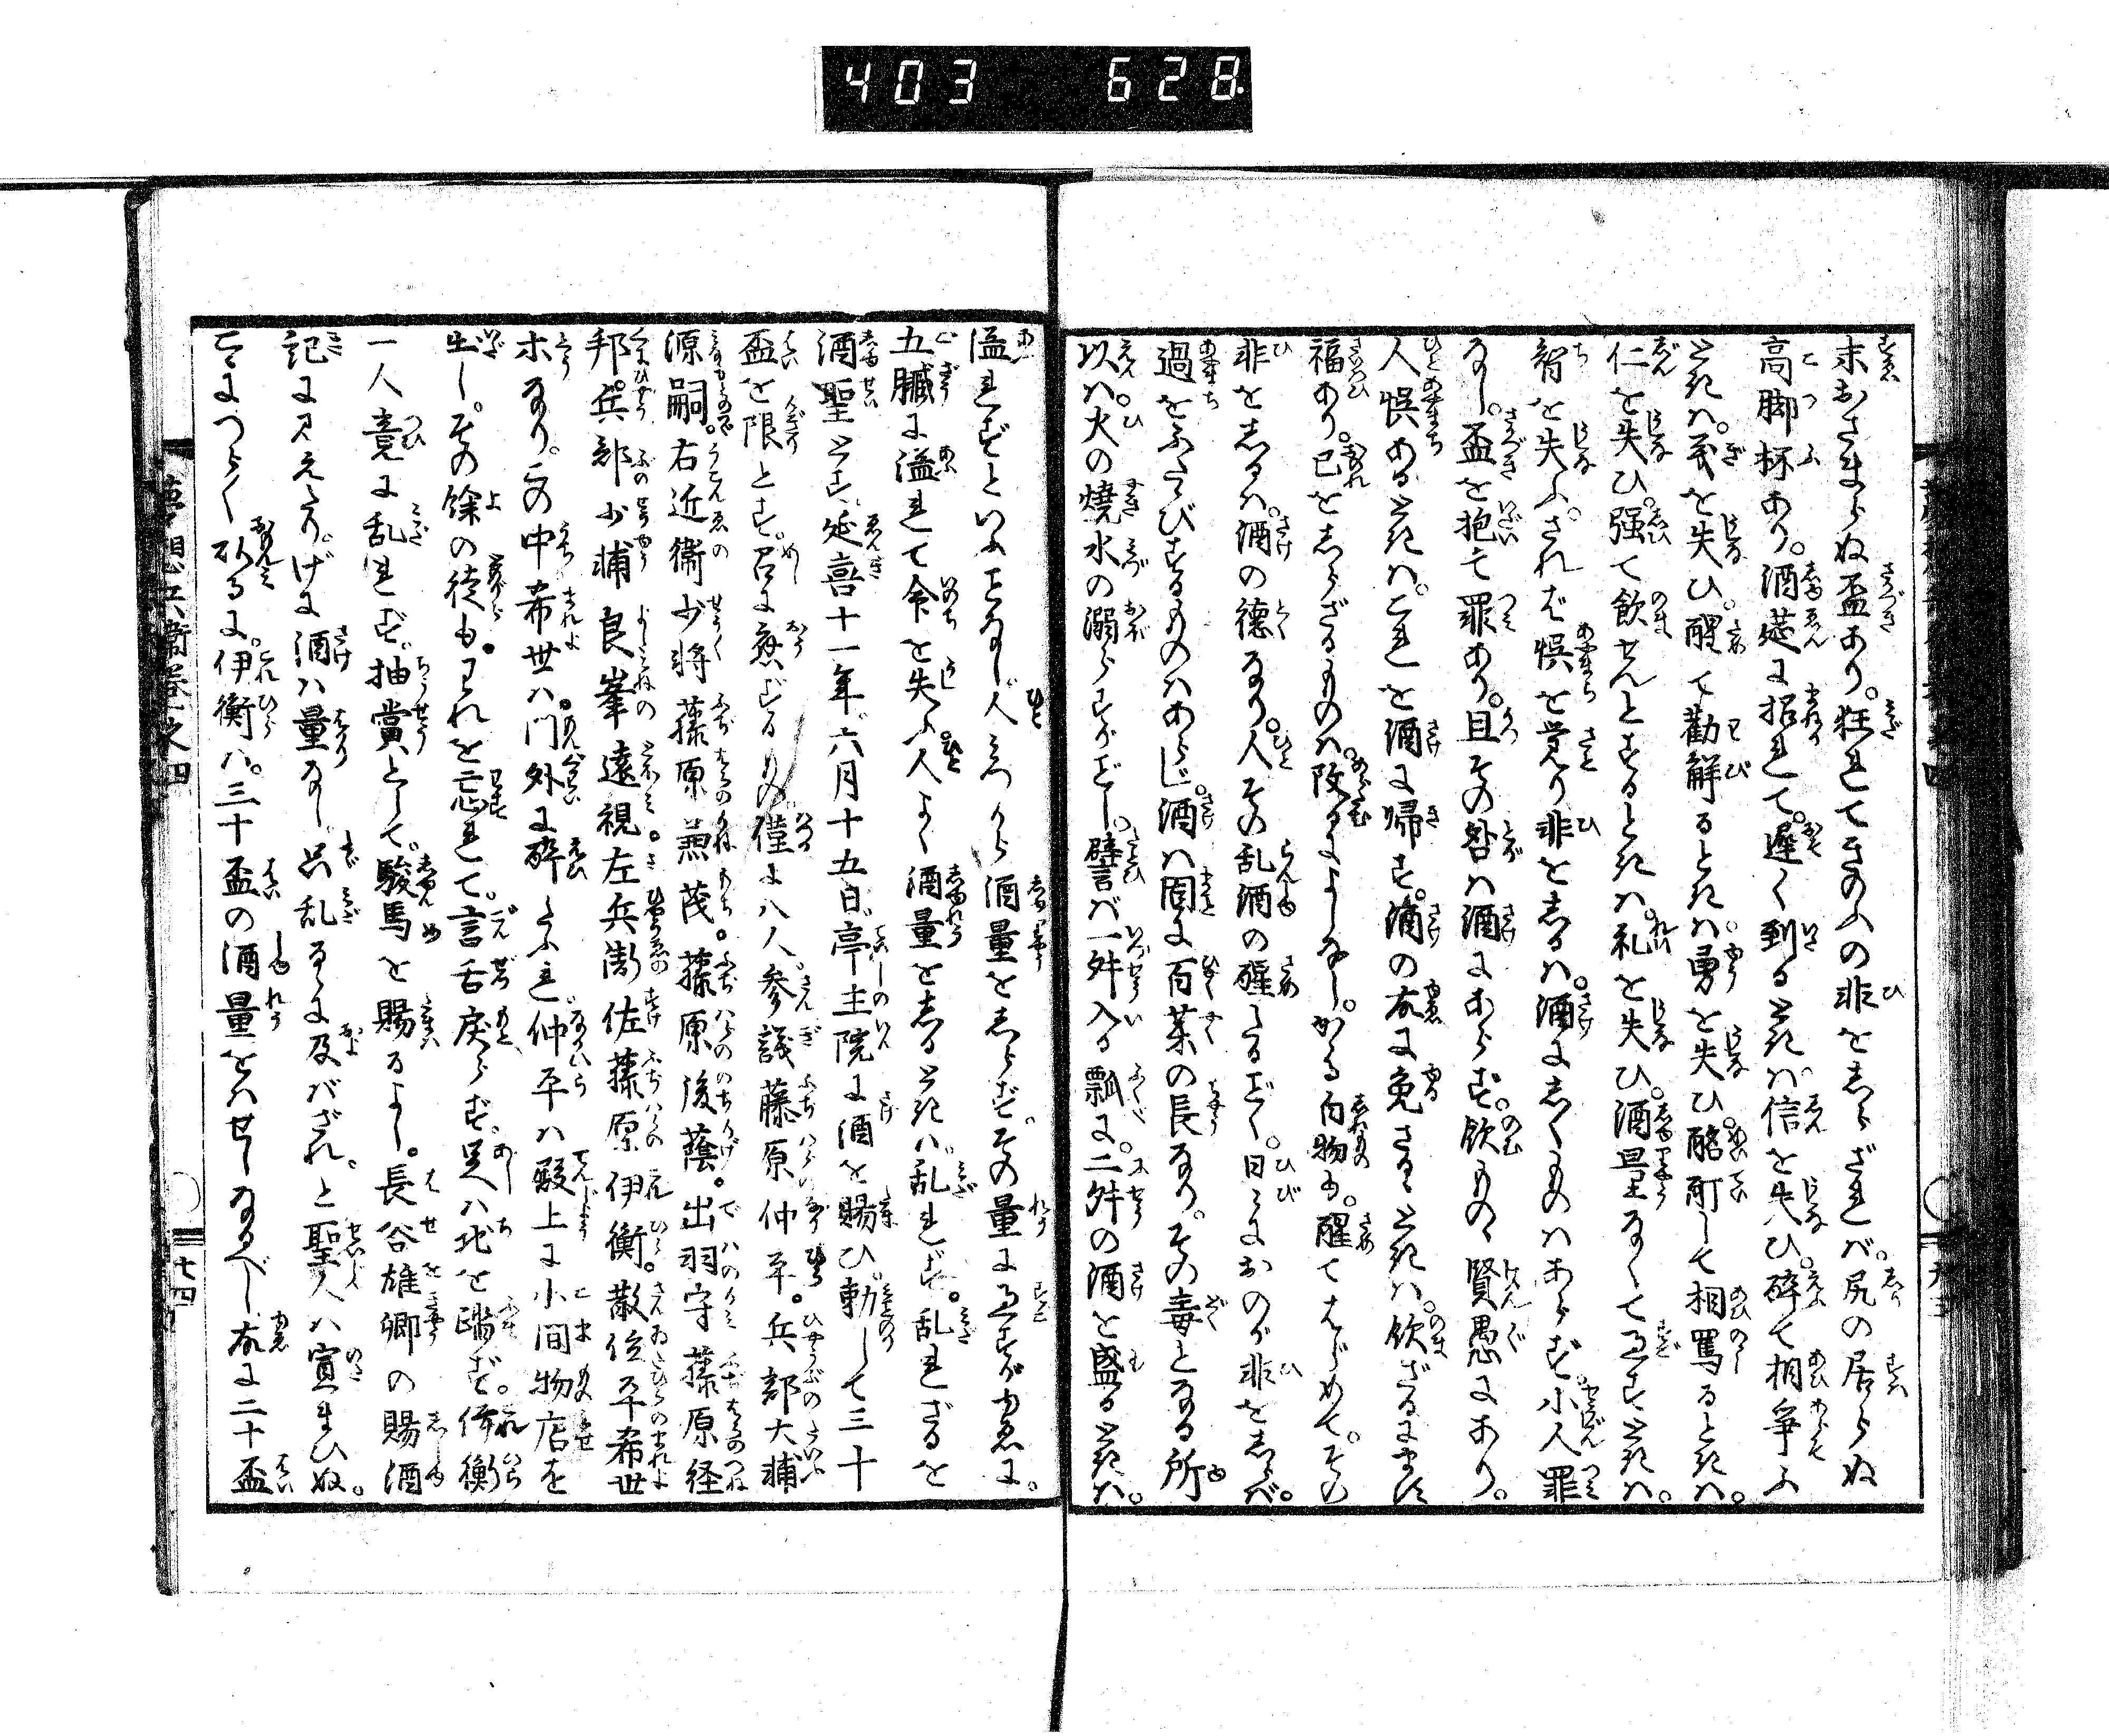 403 628
末おさまらぬ盃あり。狂れてきのふの非をしらざれバ。尻の居らぬ
高脚杯あり。酒莚に招れて。遅く到るときハ信を失ひ。酔て相争ふ
ときハ。義を失ひ。醒て勧解るときハ勇を失ひ。酩酊して相罵るときハ。
仁を失ひ。強て飲せんとするときハ。礼を失ひ。酒量なくて過すときハ。
智を失ふ。されど悞を覚り非をしるハ。酒にしくものハあらず。小人罪
なし。盃を抱て罪あり。且その咎ハ酒にあらず。飲もの賢愚にあり。
人悞あるときハ。これを酒に帰す。酒の故に免さるゝときハ。飲ざるにます
福あり。己をしらざるものハ。改るによしなし。かゝる白物も。醒てはじめて。その
非をしるハ。酒の徳なり。人その乱酒の醒たるごとく。日々におのが非をしらバ。
過をふたゝびするものハあらじ。酒ハ固に百薬の長なり。その毒となる所
以ハ火の焼水の溺らすがごとし。譬バ一舛入る瓢に。二舛の酒を盛るときハ。
溢れずといふことなし。人みづから酒量をしらず。その量に過すがゆゑに。
五臓に溢れて命を失ふ人よく酒量をしるときハ。乱れず。乱れざるを
酒聖とす。延喜十一年六月十五日。亭主院に酒を賜ひ。勅して三十
盃を限とす。召に応ずるもの僅に八人。参議藤原仲平。兵部大輔
源嗣。右近衛少将藤原兼茂。藤原後蔭。出羽守藤原経
邦。兵部少輔良峯遠視。左兵衛佐藤原伊衡。散位平希世
ホなり。この中希世ハ。門外に酔たふれ。仲平ハ殿上に小間物店を
出し。その餘の徒も。われを忘れて。言舌戻らず。足ハ地を踏ず。伊衡
一人竟に乱れず。抽賞として。駿馬を賜るよし。長谷雄卿の賜酒
記に見えたり。げに酒ハ量なし。只乱るゝに及バざれ。と聖人ハ宣まひぬ。
こゝにつらく以るに。伊衡ハ。三十盃の酒量をハせしなるべし。故に二十盃
夢想兵衛巻之四
七四